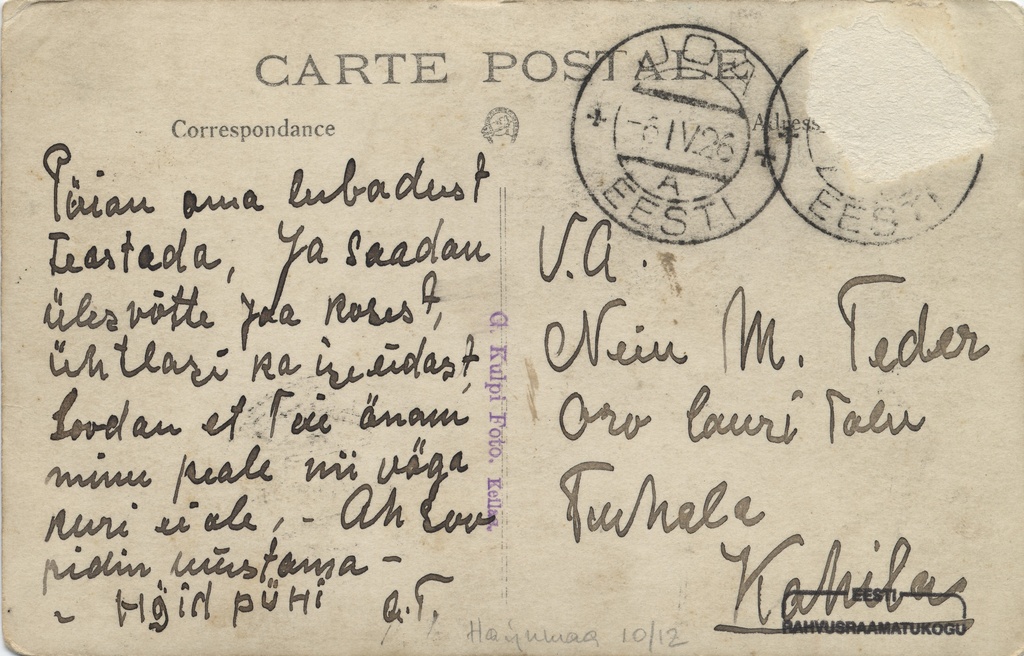 CARTE POSTALE
Correspondance
Adress
JOA
-6 IV 26
A
EESTI
EESTI
Püian oma lubadust
teastada, Ja saadan
ülesvõtte Joa kosest,
ühtlasi ka iseeidast,
Loodan et Teie änam
minu peale nii väga
kuri ei ole, - Ah soo
pidin unustama -
- HÄID PÜHI G.T.
G. Kulpi Foto, Keilas.
V.A.
Neiu M. Teder
Oro Lauri Talu
Tuhala
Kohila
Harjumaa 10/12
EESTI
RAHVUSRAAMATUKOGU